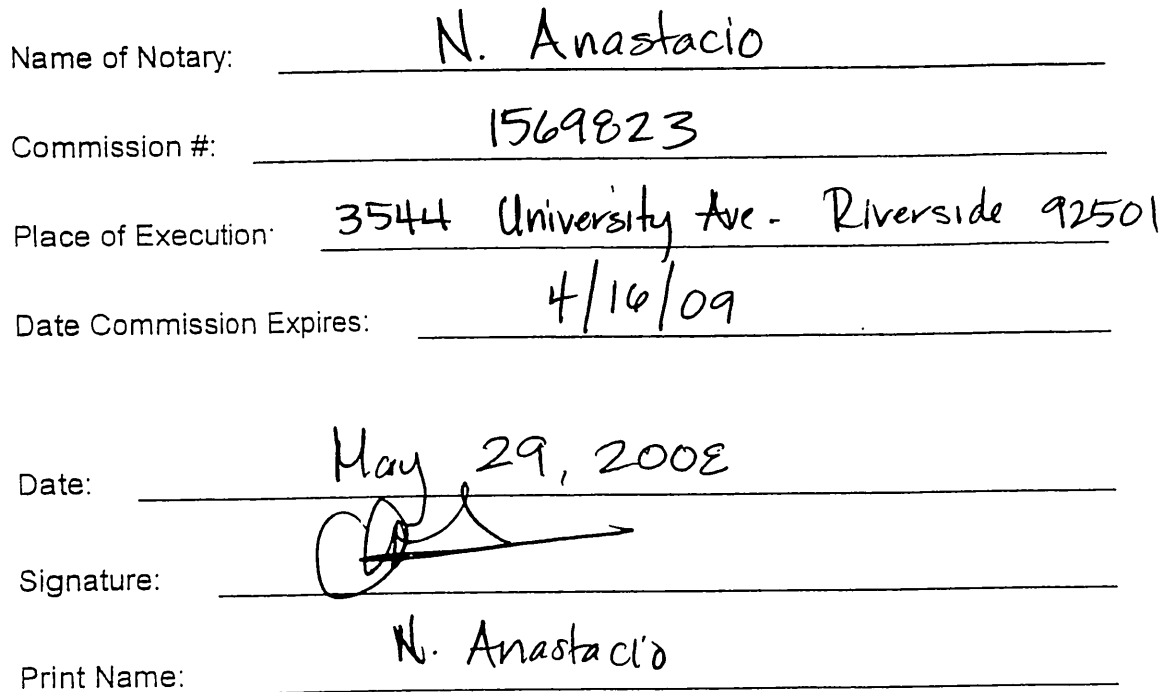 Name of Notary: N. Anastacio
Commission #: 1569823
Place of Execution: 3544 University Ave. Riverside 92501
Date Commission Expires: 4/16/09
Date: May 29, 2008
Signature:
Print Name: N. Anastacio